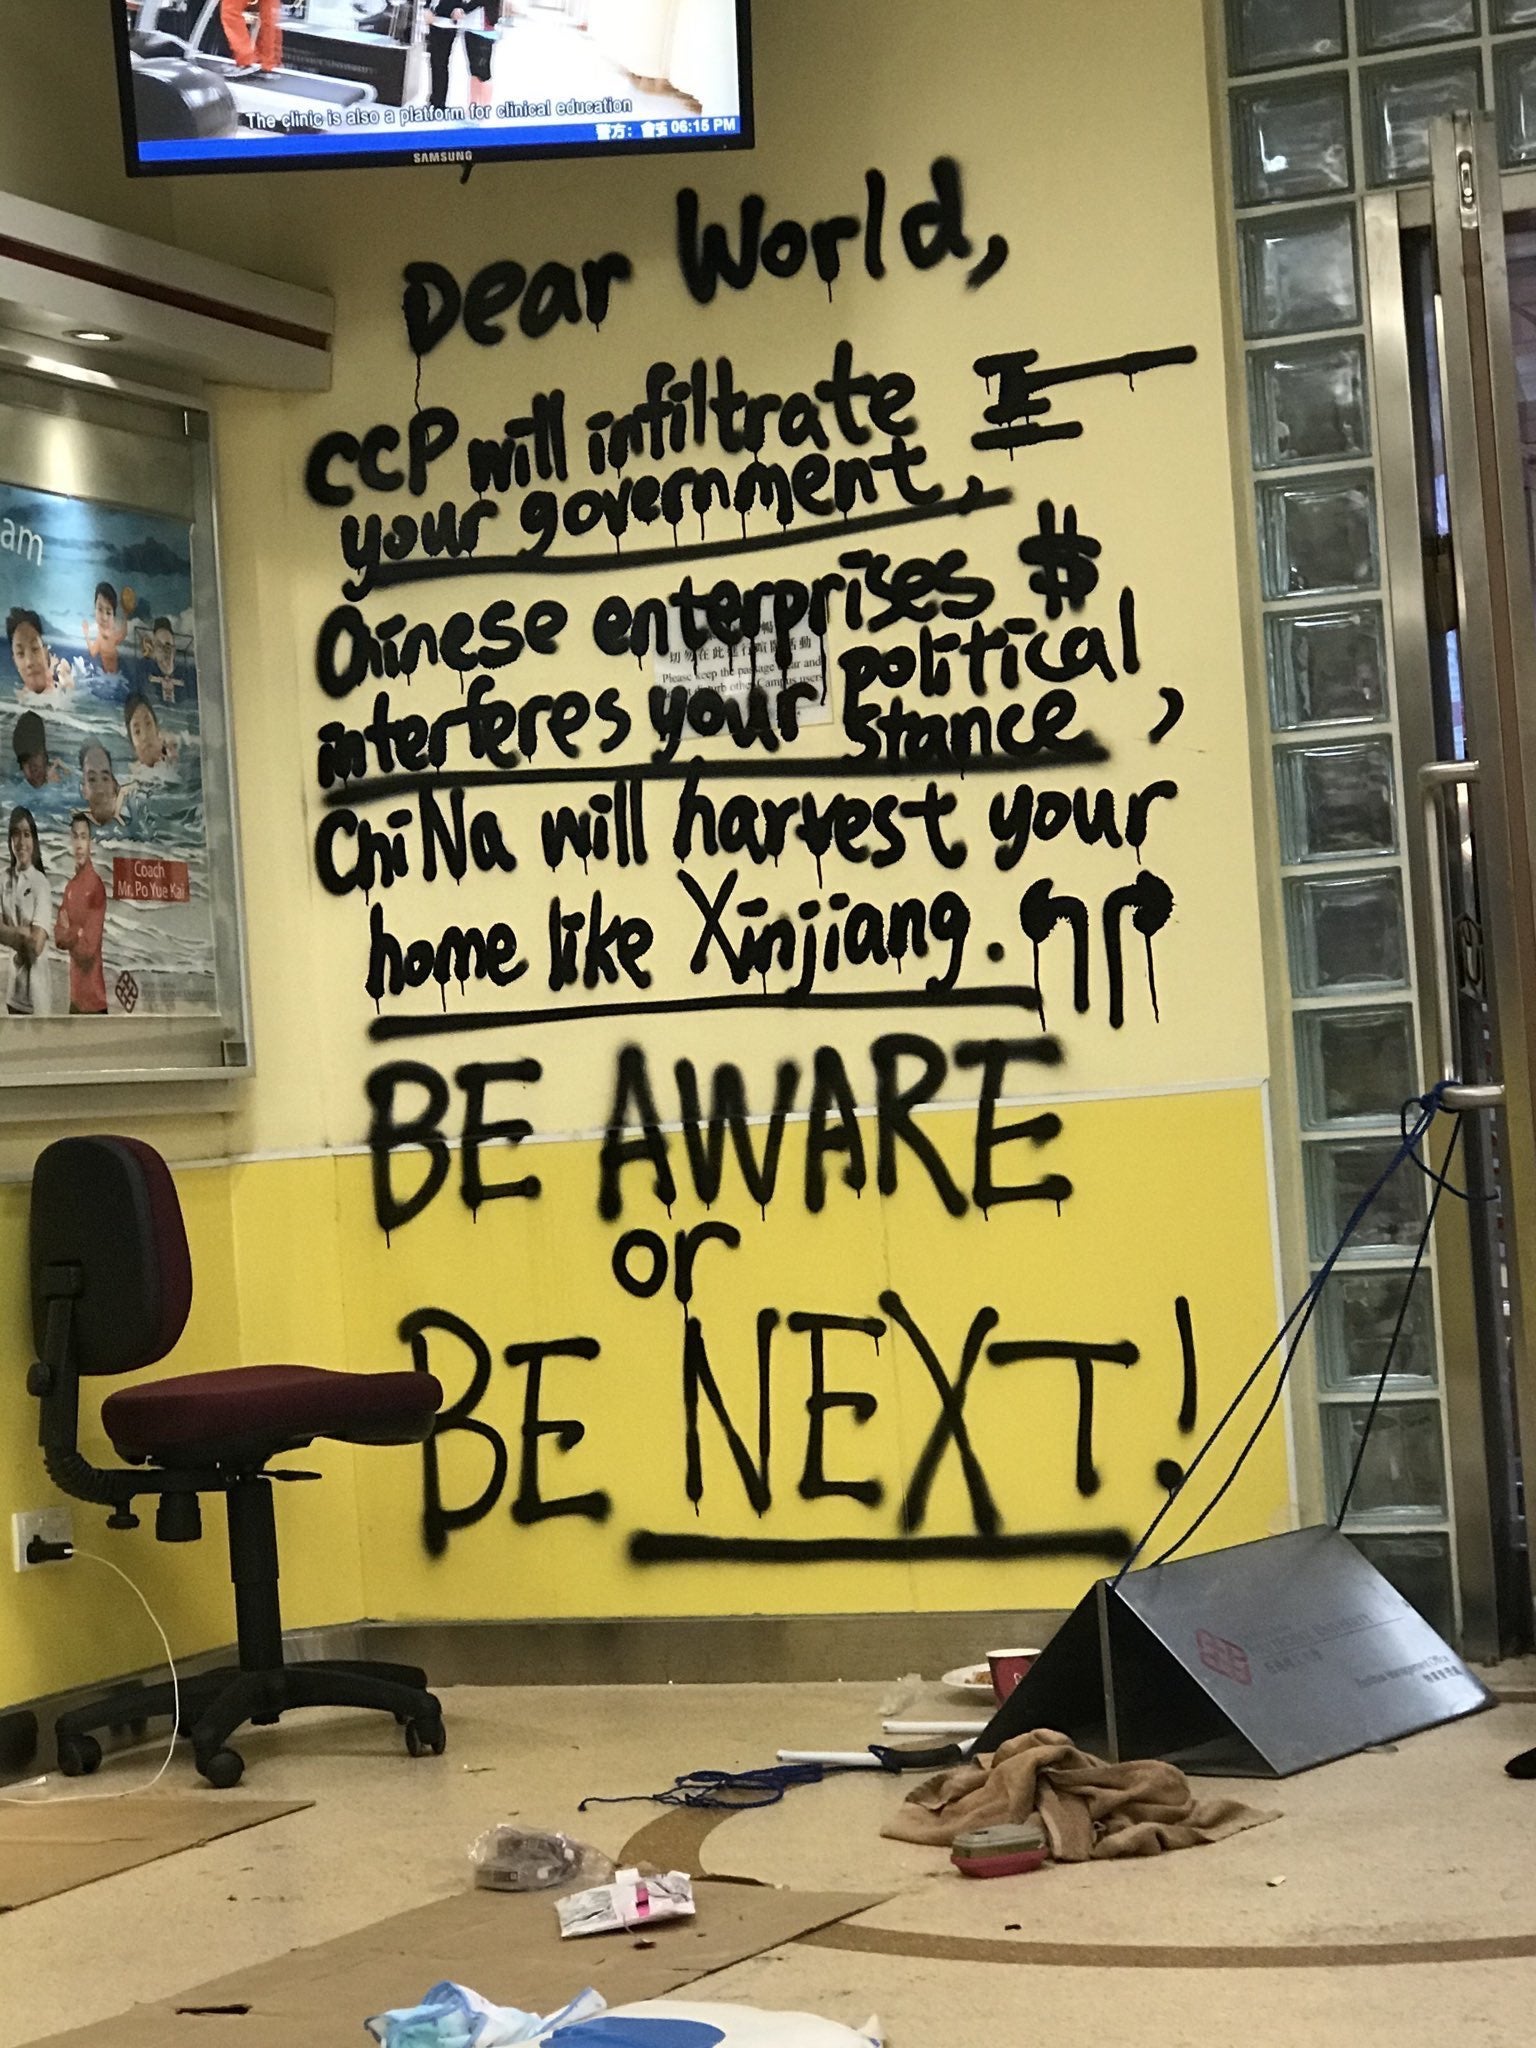 The clinic is also a platform for clinical education
警方： 06:15 PM
SAMSUNG
Dear World,
CCP will infiltrate
your government,
Chinese enterprises $
interferes your political
stance,
ChiNa will harvest your
home like Xinjiang.
BE AWARE
or
BE NEXT!
切勿在此進行喧鬧活動
Please keep the passage clear and
disturb other Campus users
am
Coach
Mr. Po Yue Kai